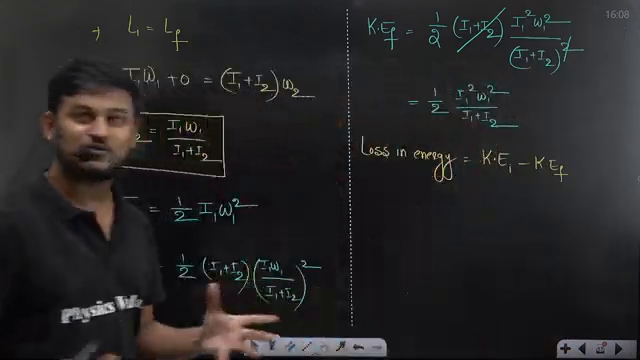 → L₁ = L_f
I₁ω₁ + 0 = (I₁+I₂)ω₂
= I₁ω₁ / (I₁+I₂)
= 1/2 I₁ω₁²
1/2 (I₁+I₂) (I₁ω₁ / (I₁+I₂))²
K.E_f = 1/2 (I₁+I₂) I₁²ω₁² / (I₁+I₂)²
= 1/2 I₁²ω₁² / (I₁+I₂)
Loss in energy = K.E₁ - KE_f
Physics
16:08